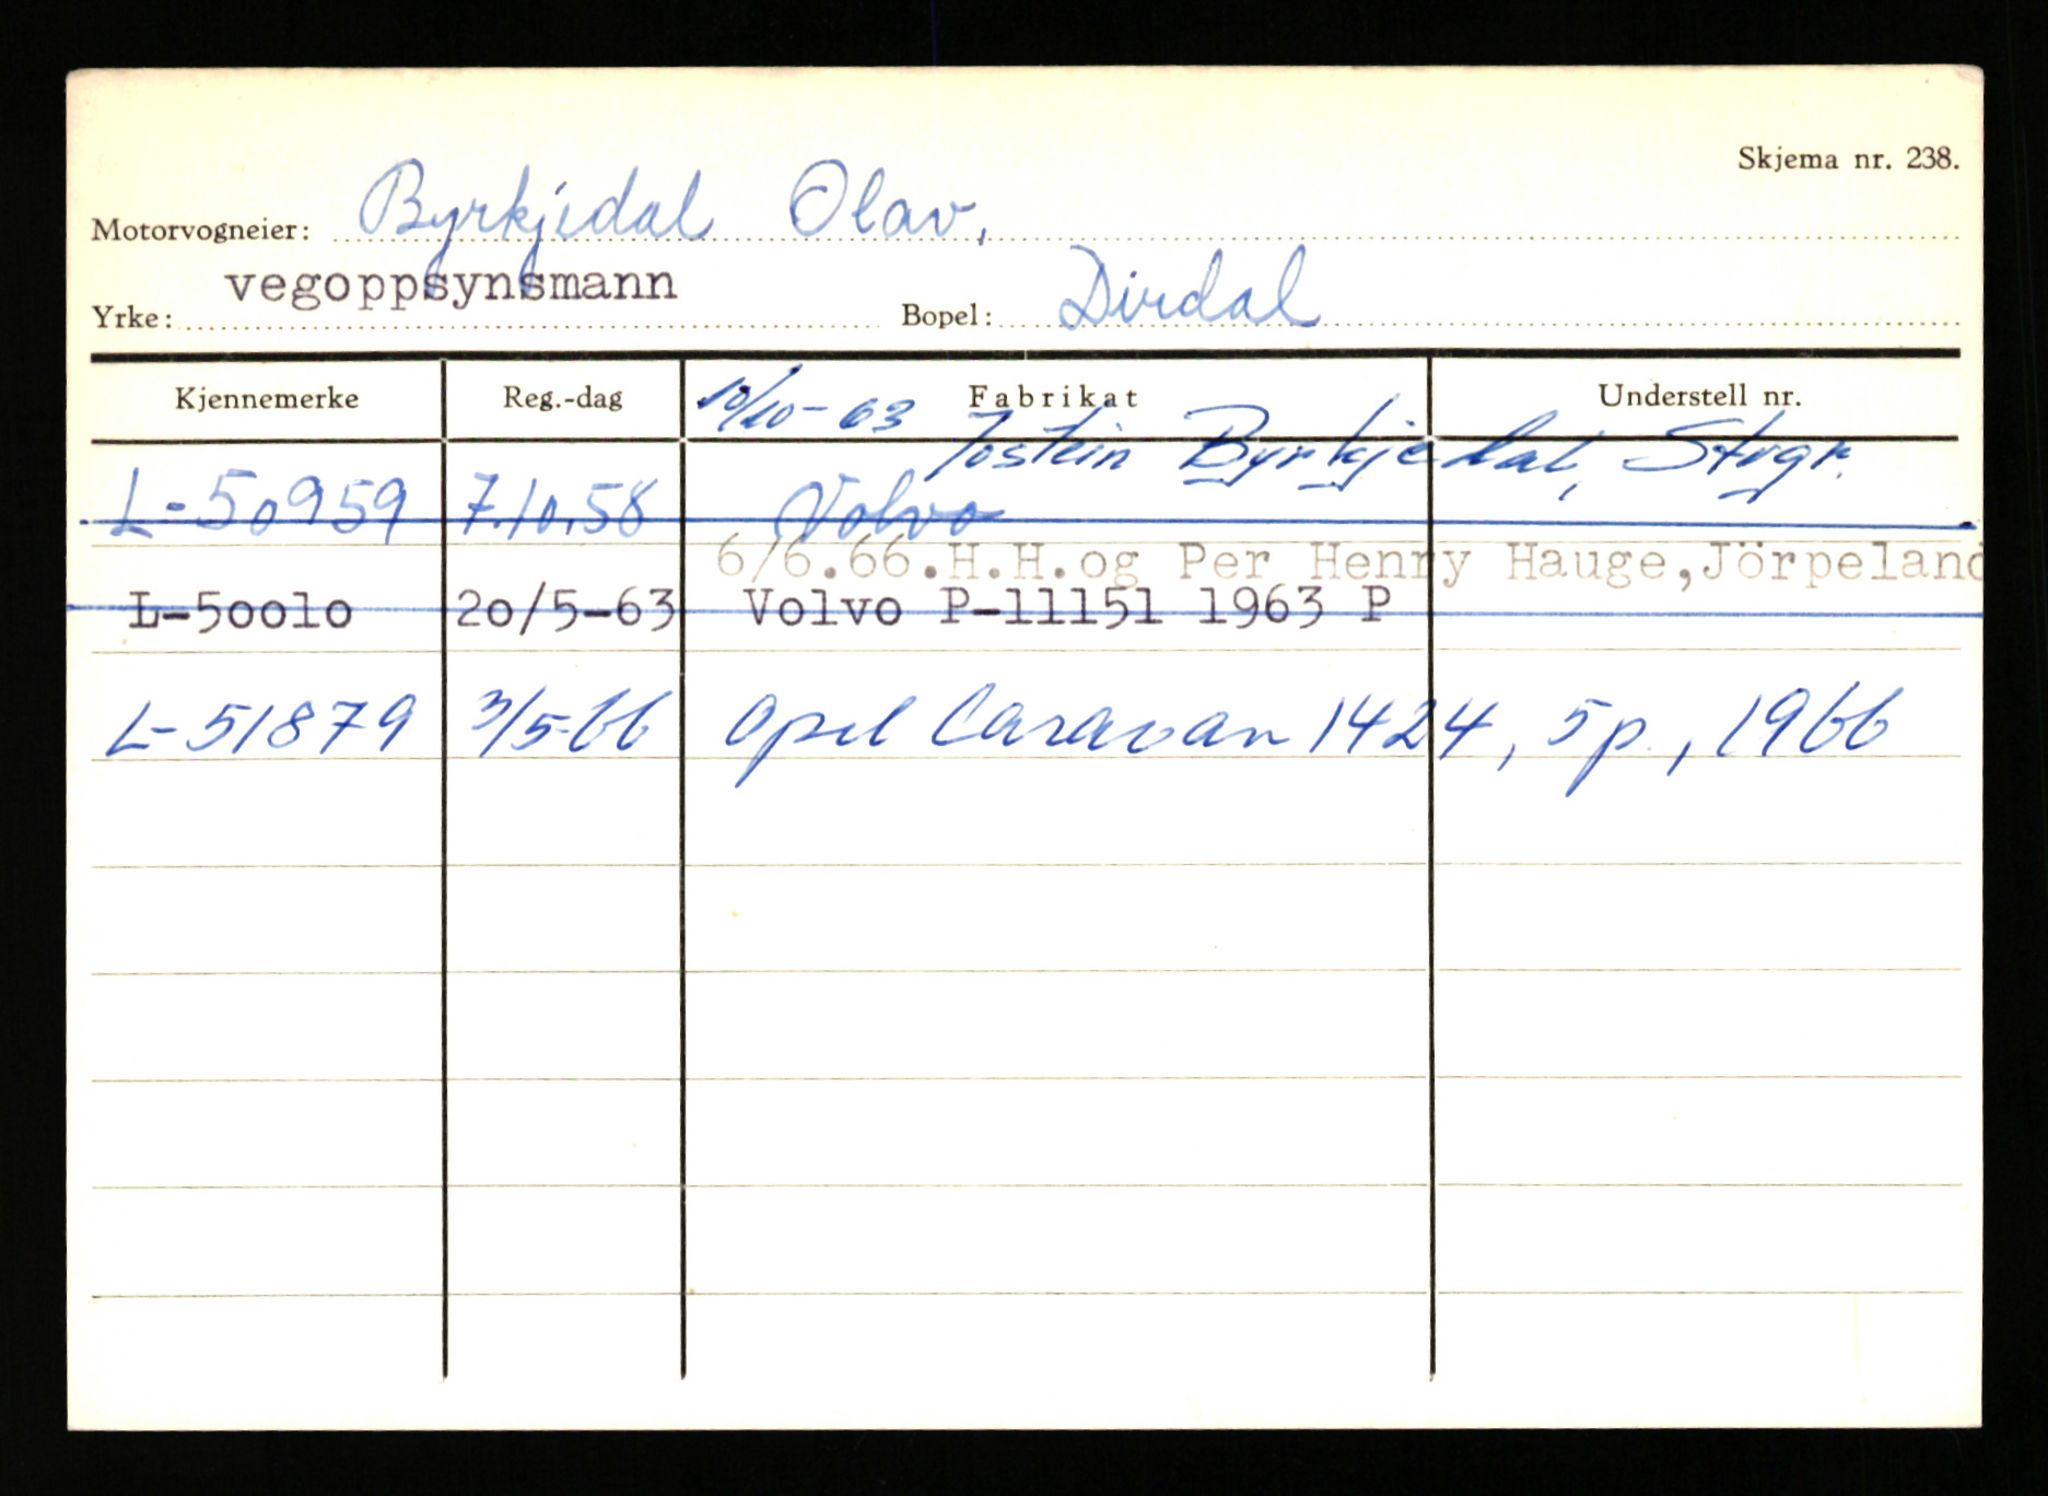 Skjema nr. 238.
Motorvogneier: Byrkjedal Olav,
Yrke: vegoppsynsmann Bopel: Dirdal
Kjennemerke Reg.-dag Fabrikat Understell nr.
10/10-63 Jostein Byrkjedal, Stvgr.
L-50959 7.10.58 Volvo
6/6.66.H.H.og Per Henry Hauge,Jörpeland
L-50010 20/5-63 Volvo P-11151 1963 P
L-51879 3/5-66 Opel Caravan 1424, 5p., 1966